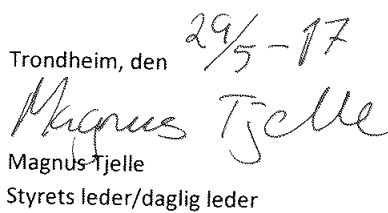 Trondheim, den 29/5-17
Magnus Tjelle
Magnus Tjelle
Styrets leder/daglig leder